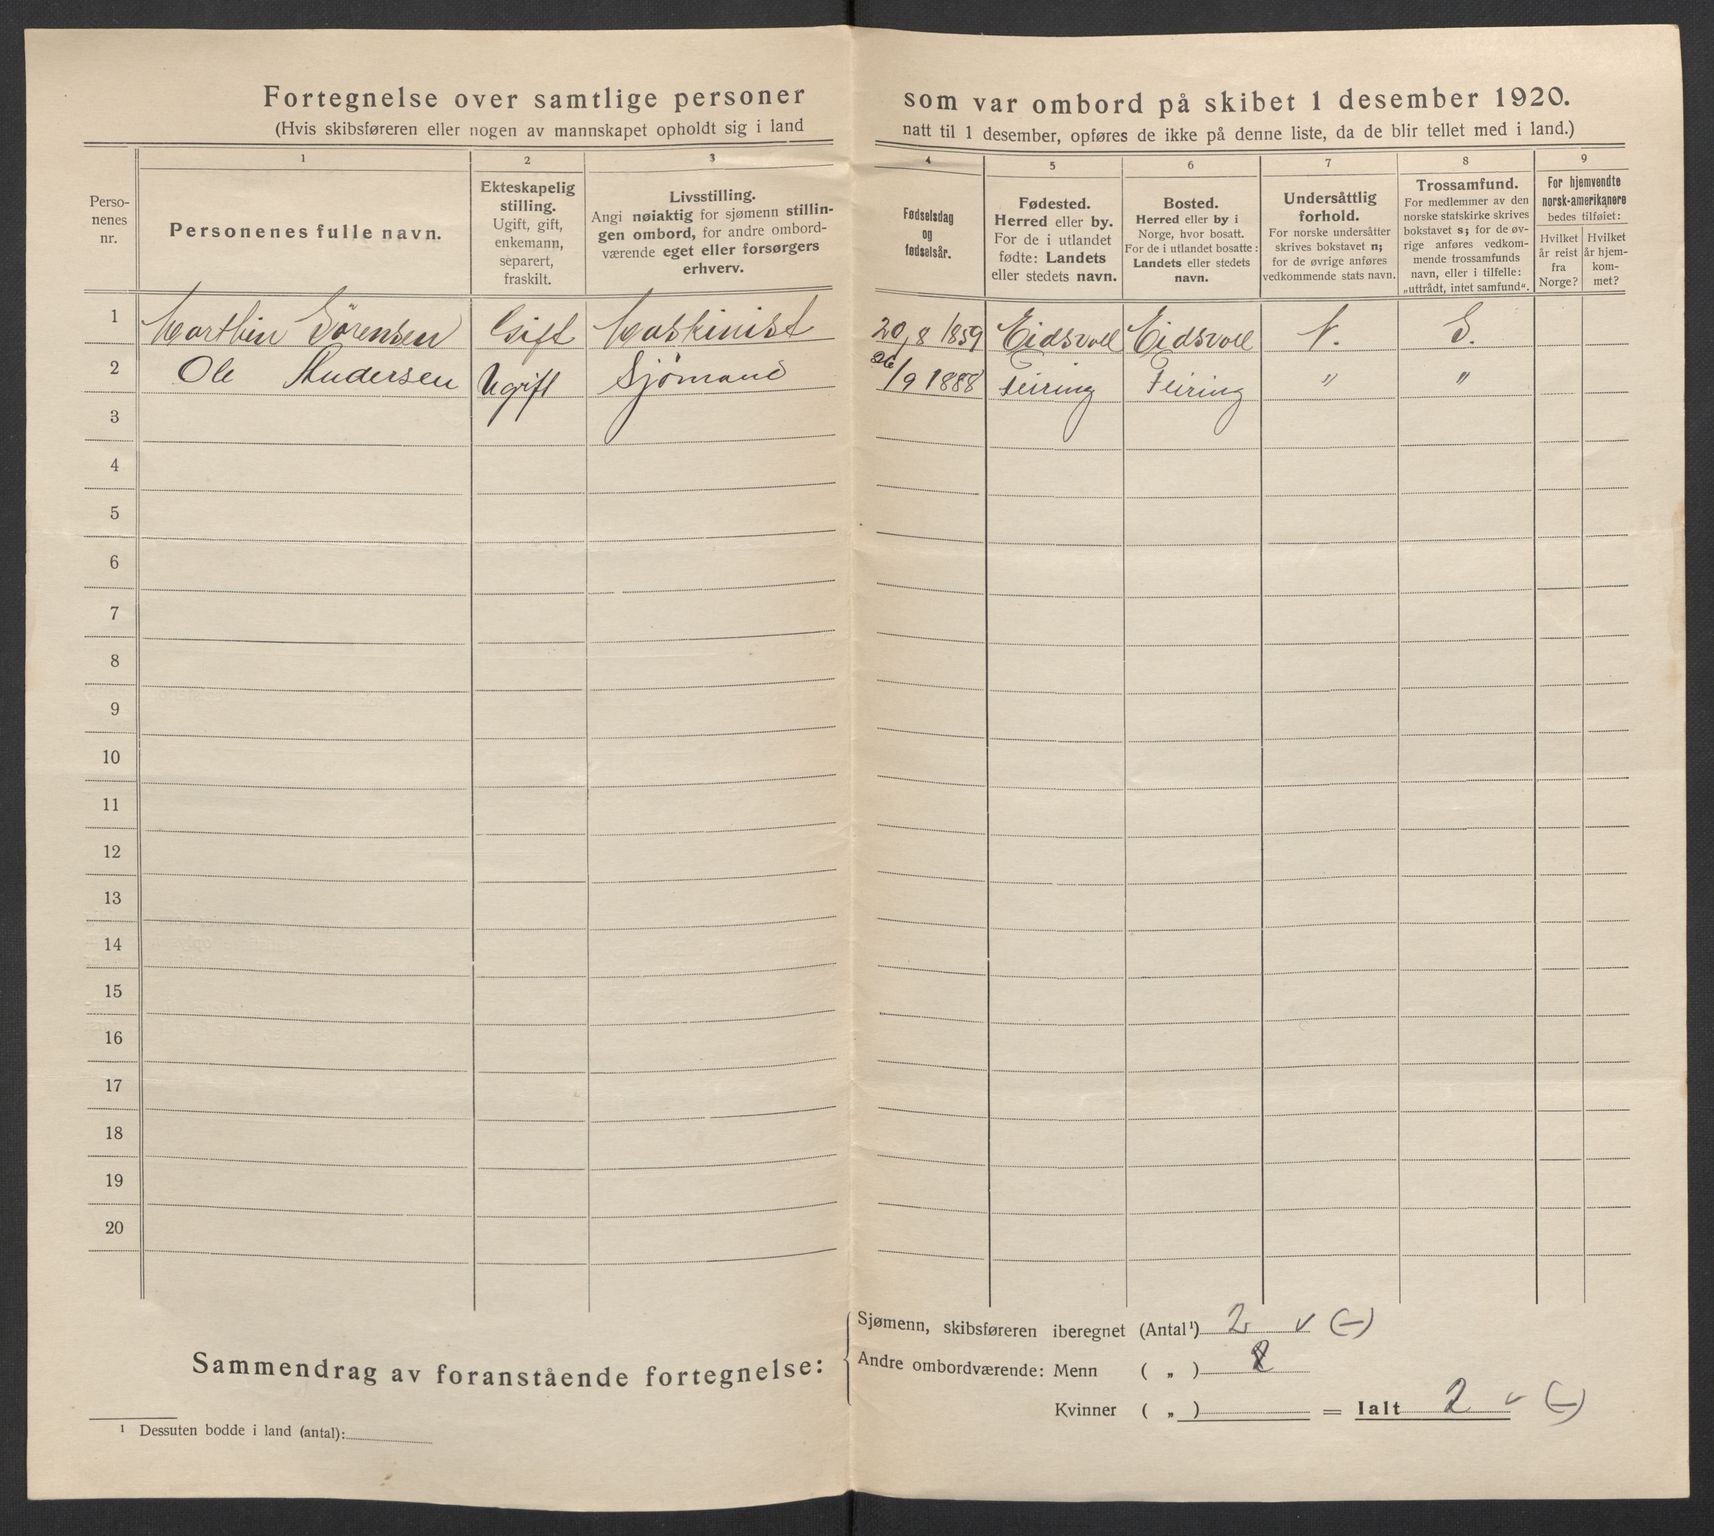 Fortegnelse over samtlige personer som var ombord på skibet 1 desember 1920.
(Hvis skibsføreren eller nogen av mannskapet opholdt sig i land natt til 1 desember, opføres de ikke på denne liste, da de blir tellet med i land.)
Perso-
nenes
nr.
1
Personenes fulle navn.
2
Ekteskapelig
stilling.
Ugift, gift,
enkemann,
separert,
fraskilt.
3
Livsstilling.
Angi nøiaktig for sjømenn stillin-
gen ombord, for andre ombord-
værende eget eller forsørgers
erhverv.
4
Fødselsdag
og
fødselsår.
5
Fødested.
Herred eller by.
For de i utlandet
fødte: Landets
eller stedets navn.
6
Bosted.
Herred eller by i
Norge, hvor bosatt.
For de i utlandet bosatte:
Landets eller stedets
navn.
7
Undersåttlig
forhold.
For norske undersåtter
skrives bokstavet n;
for de øvrige anføres
vedkommende stats navn.
8
Trossamfund.
For medlemmer av den
norske statskirke skrives
bokstavet s; for de øv-
rige anføres vedkom-
mende trossamfunds
navn, eller i tilfelle:
„uttrådt, intet samfund“.
9
For hjemvendte
norsk-amerikanere
bedes tilføiet:
Hvilket
år reist
fra
Norge?
Hvilket
år hjem-
kom-
met?
1 Marthin Sörensen Gift Maskinist 20/8 1859 Eidsvoll Eidsvoll N. S.
2 Ole Andersen Ugift Sjömand 26/9 1888 Feiring Feiring " "
3
4
5
6
7
8
9
10
11
12
13
14
15
16
17
18
19
20
Sammendrag av foranstående fortegnelse:
Sjømenn, skibsføreren iberegnet (Antal¹) 2 v (—)
Andre ombordværende: Menn ( „ )
Kvinner ( „ ) = Ialt 2 v (—)
¹ Dessuten bodde i land (antal):